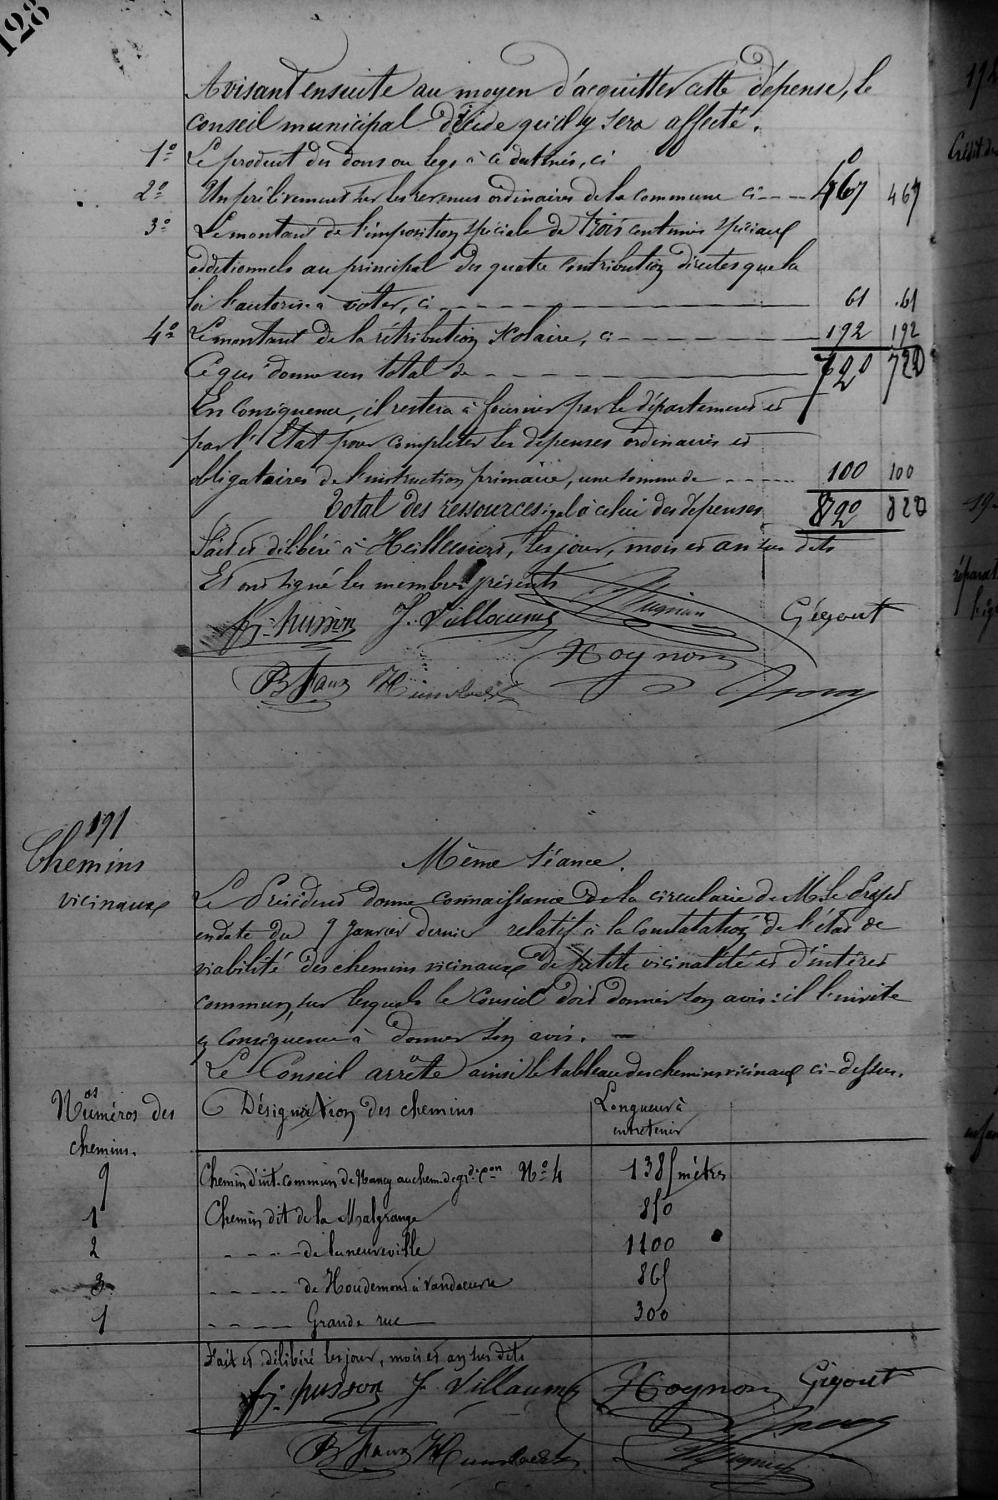 128
Avisant ensuite au moyen d'acquitter cette dépense, le
Conseil municipal décide qu'il y sera affecté.
1° Le produit des dons ou legs à ce destinés, ci 0
2° Un prélèvement sur les revenus ordinaires de la commune ci 467 467
3° Le montant de l'imposition spéciale de trois centimes spéciaux
additionnels au principal des quatre contributions directes que la
loi l'autorise à voter, ci 61 61
4° Le montant de la rétribution scolaire, ci 192 192
Ce qui donne un total de 720 720
En conséquence, il restera à fournir par le département et
par l'État pour compléter les dépenses ordinaires et
obligatoires de l'instruction primaire, une somme de 100 100
Total des ressources égal à celui des dépenses 820 820
Fait et délibéré à Heillecourt, les jour, mois et an sus dits
Et ont signé les membres présents
husson J. Villaume Gégout
Hoynon
Humbert
191
Chemins
vicinaux
Même séance.
Le Président donne connaissance de la circulaire de M. le Préfet
en date du 9 Janvier dernier relatif à la constatation de l'état de
viabilité des chemins vicinaux de petite vicinalité et d'intérêt
commun, sur lesquels le Conseil doit donner son avis : il l'invite
en conséquence à donner son avis.
Le Conseil arrête ainsi le tableau des chemins vicinaux ci-dessus.
Numéros des chemins. Désignation des chemins Longueur à entretenir
9 Chemin d'int. commun de Nancy au chem. de gde Con N° 4 1385 mètres
1 Chemin dit de la Malgrange 850
2 - - - - de laneuveville 1100
3 - - - - de Houdemont à Vandoeuvre 865
1 - - - - Grande rue 300
Fait et délibéré les jour, mois et an sus dits
husson J. Villaume Hoynon Gégout
Humbert